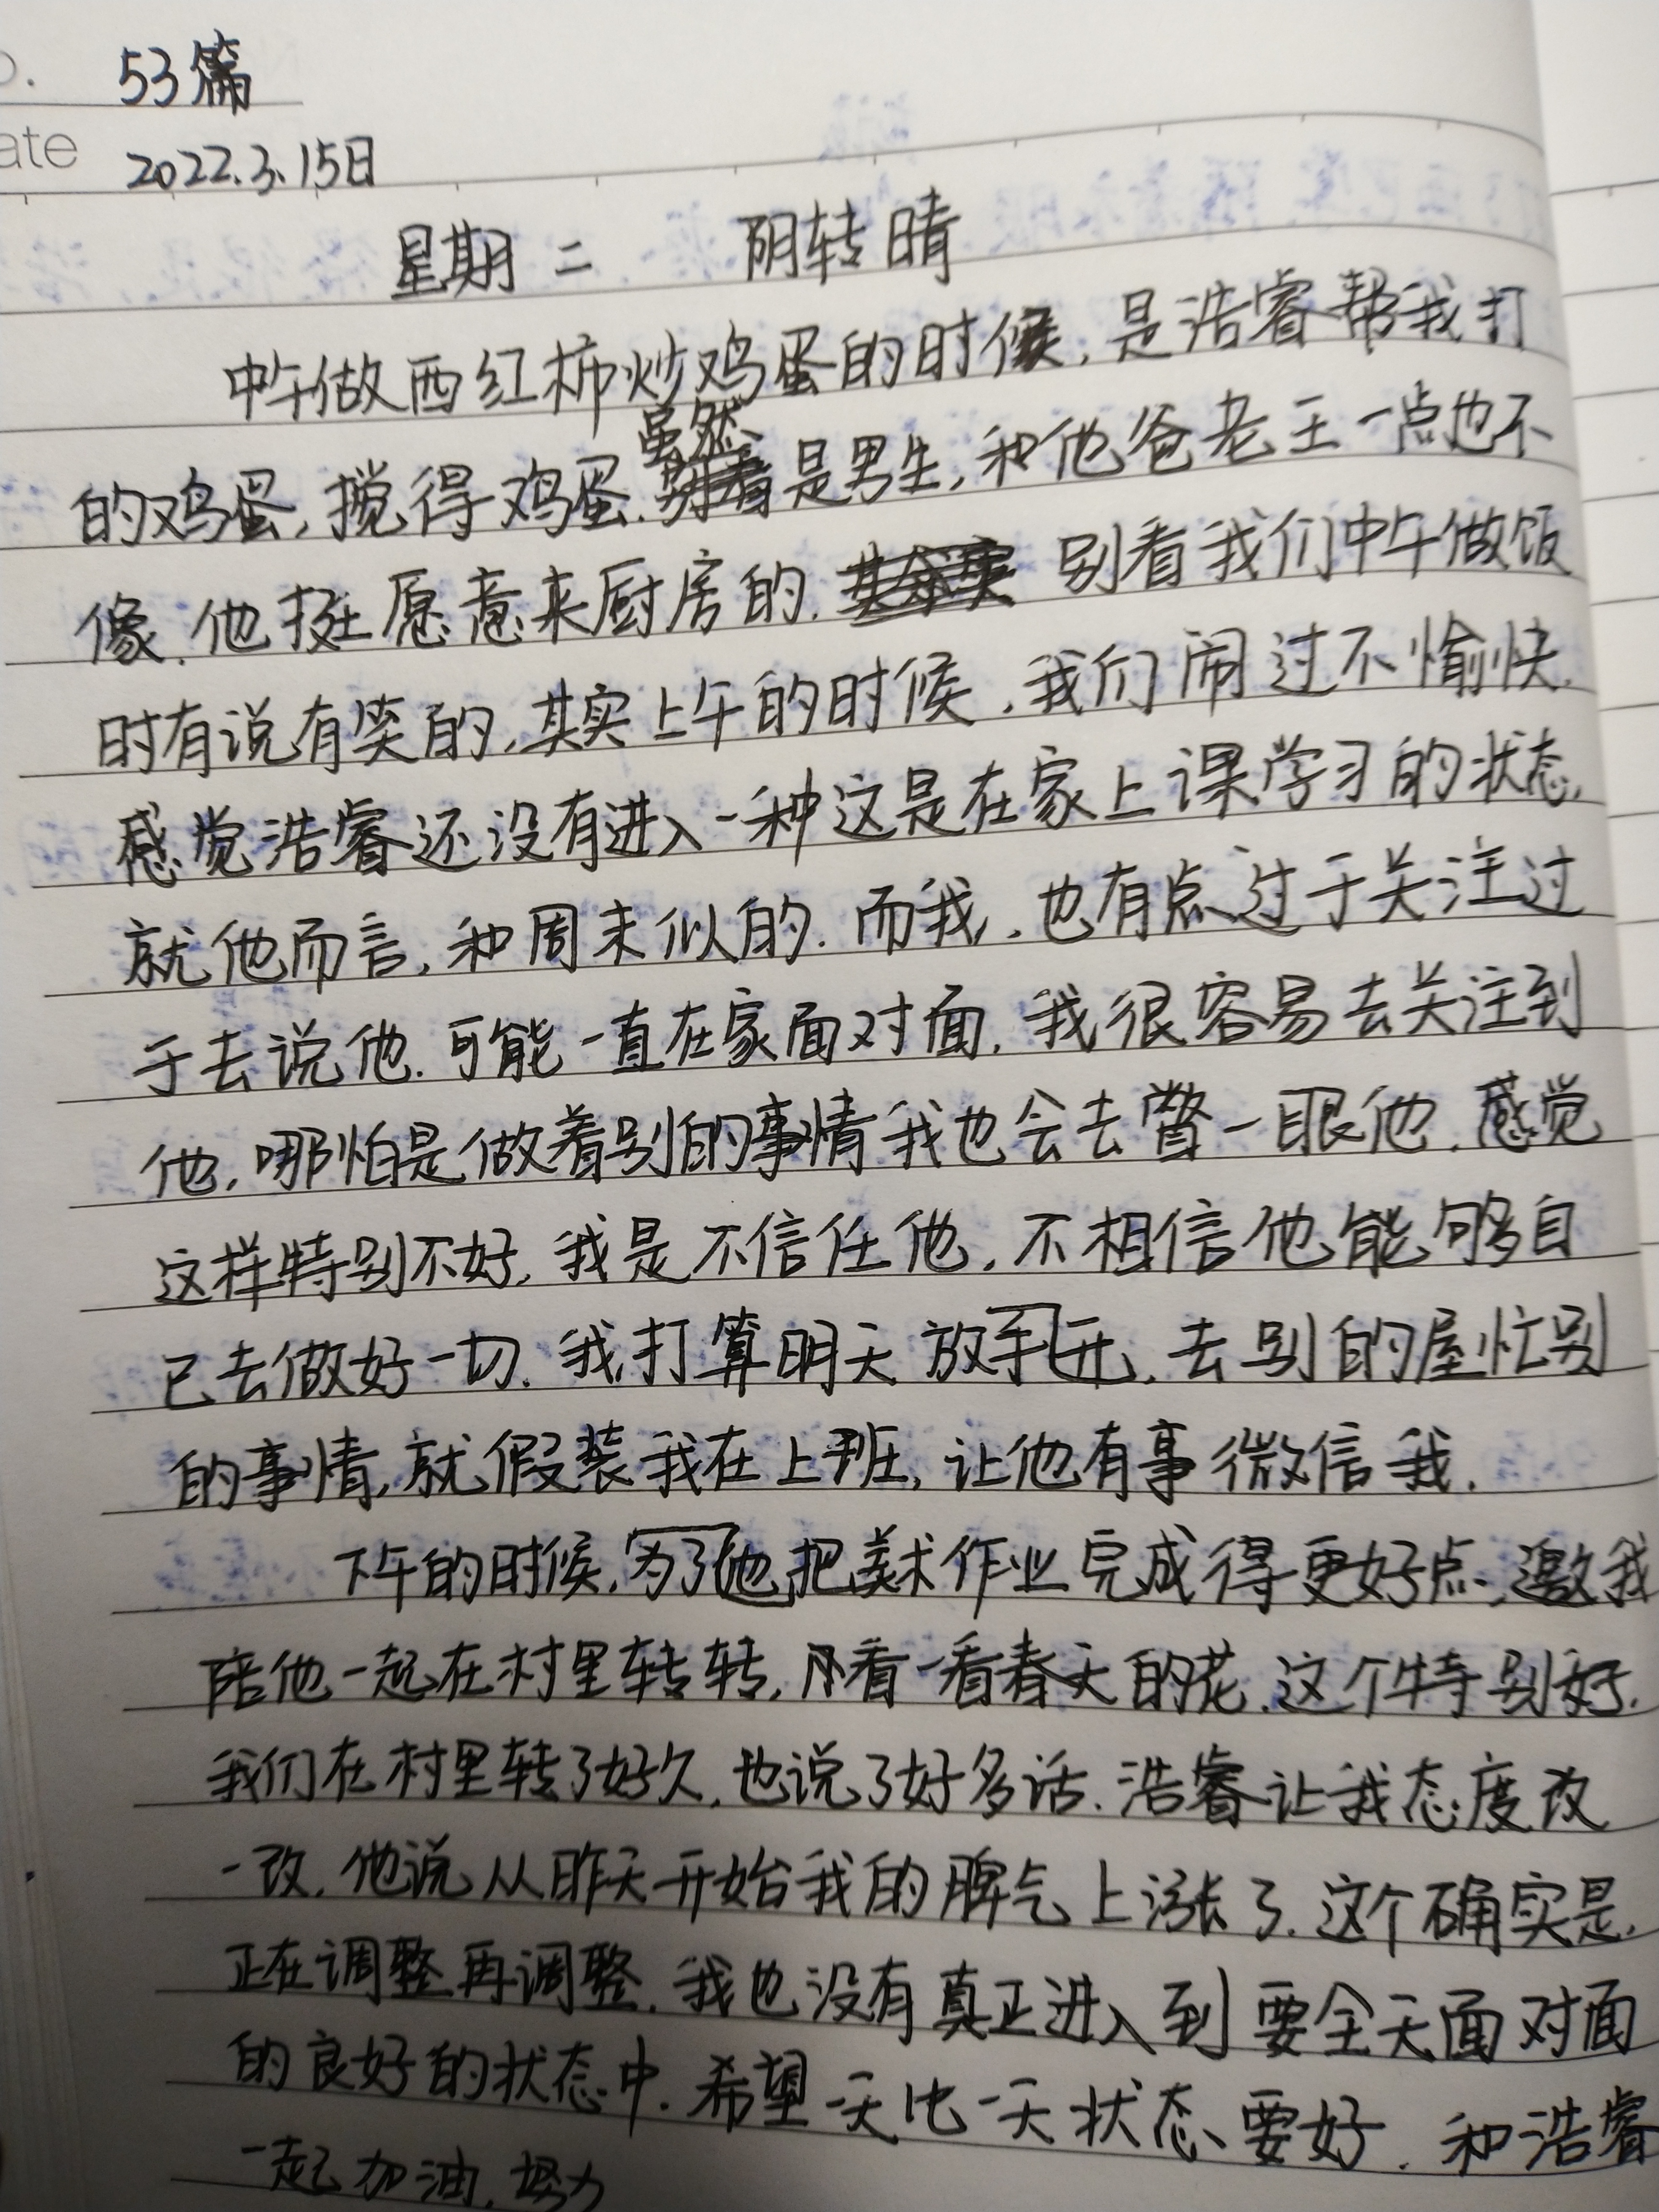 53篇
ate 2022.3.15日
星期二 阴转晴
中午做西红柿炒鸡蛋的时候,是浩睿帮我打
的鸡蛋,搅得鸡蛋.虽然是男生,和他爸老王一点也不
像.他挺愿意来厨房的.别看我们中午做饭
时有说有笑的,其实上午的时候,我们闹过不愉快.
感觉浩睿还没有进入一种这是在家上课学习的状态,
就他而言,和周末似的.而我,也有点过于关注过
于去说他.可能一直在家面对面,我很容易去关注到
他,哪怕是做着别的事情我也会去瞥一眼他.感觉
这样特别不好,我是不信任他,不相信他能够自
己去做好一切.我打算明天放开手,去别的屋忙别
的事情,就假装我在上班,让他有事微信我.
下午的时候,他为了把美术作业完成得更好点,邀我
陪他一起在村里转转,看一看春天的花.这个特别好.
我们在村里转了好久,也说了好多话.浩睿让我态度改
一改,他说从昨天开始我的脾气上涨了.这个确实是,
正在调整再调整.我也没有真正进入到要全天面对面
的良好的状态中.希望一天比一天状态要好.和浩睿
一起加油,努力